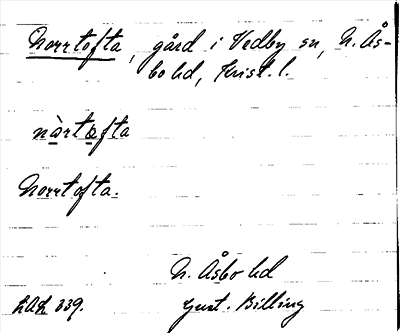 Norrtofta, gård i Vedby sn, N. Ås-
bo hd, Krist. l.
nàrtofta
Norrtofta.
N. Åsbo hd
LAL 339. Gust. Billing